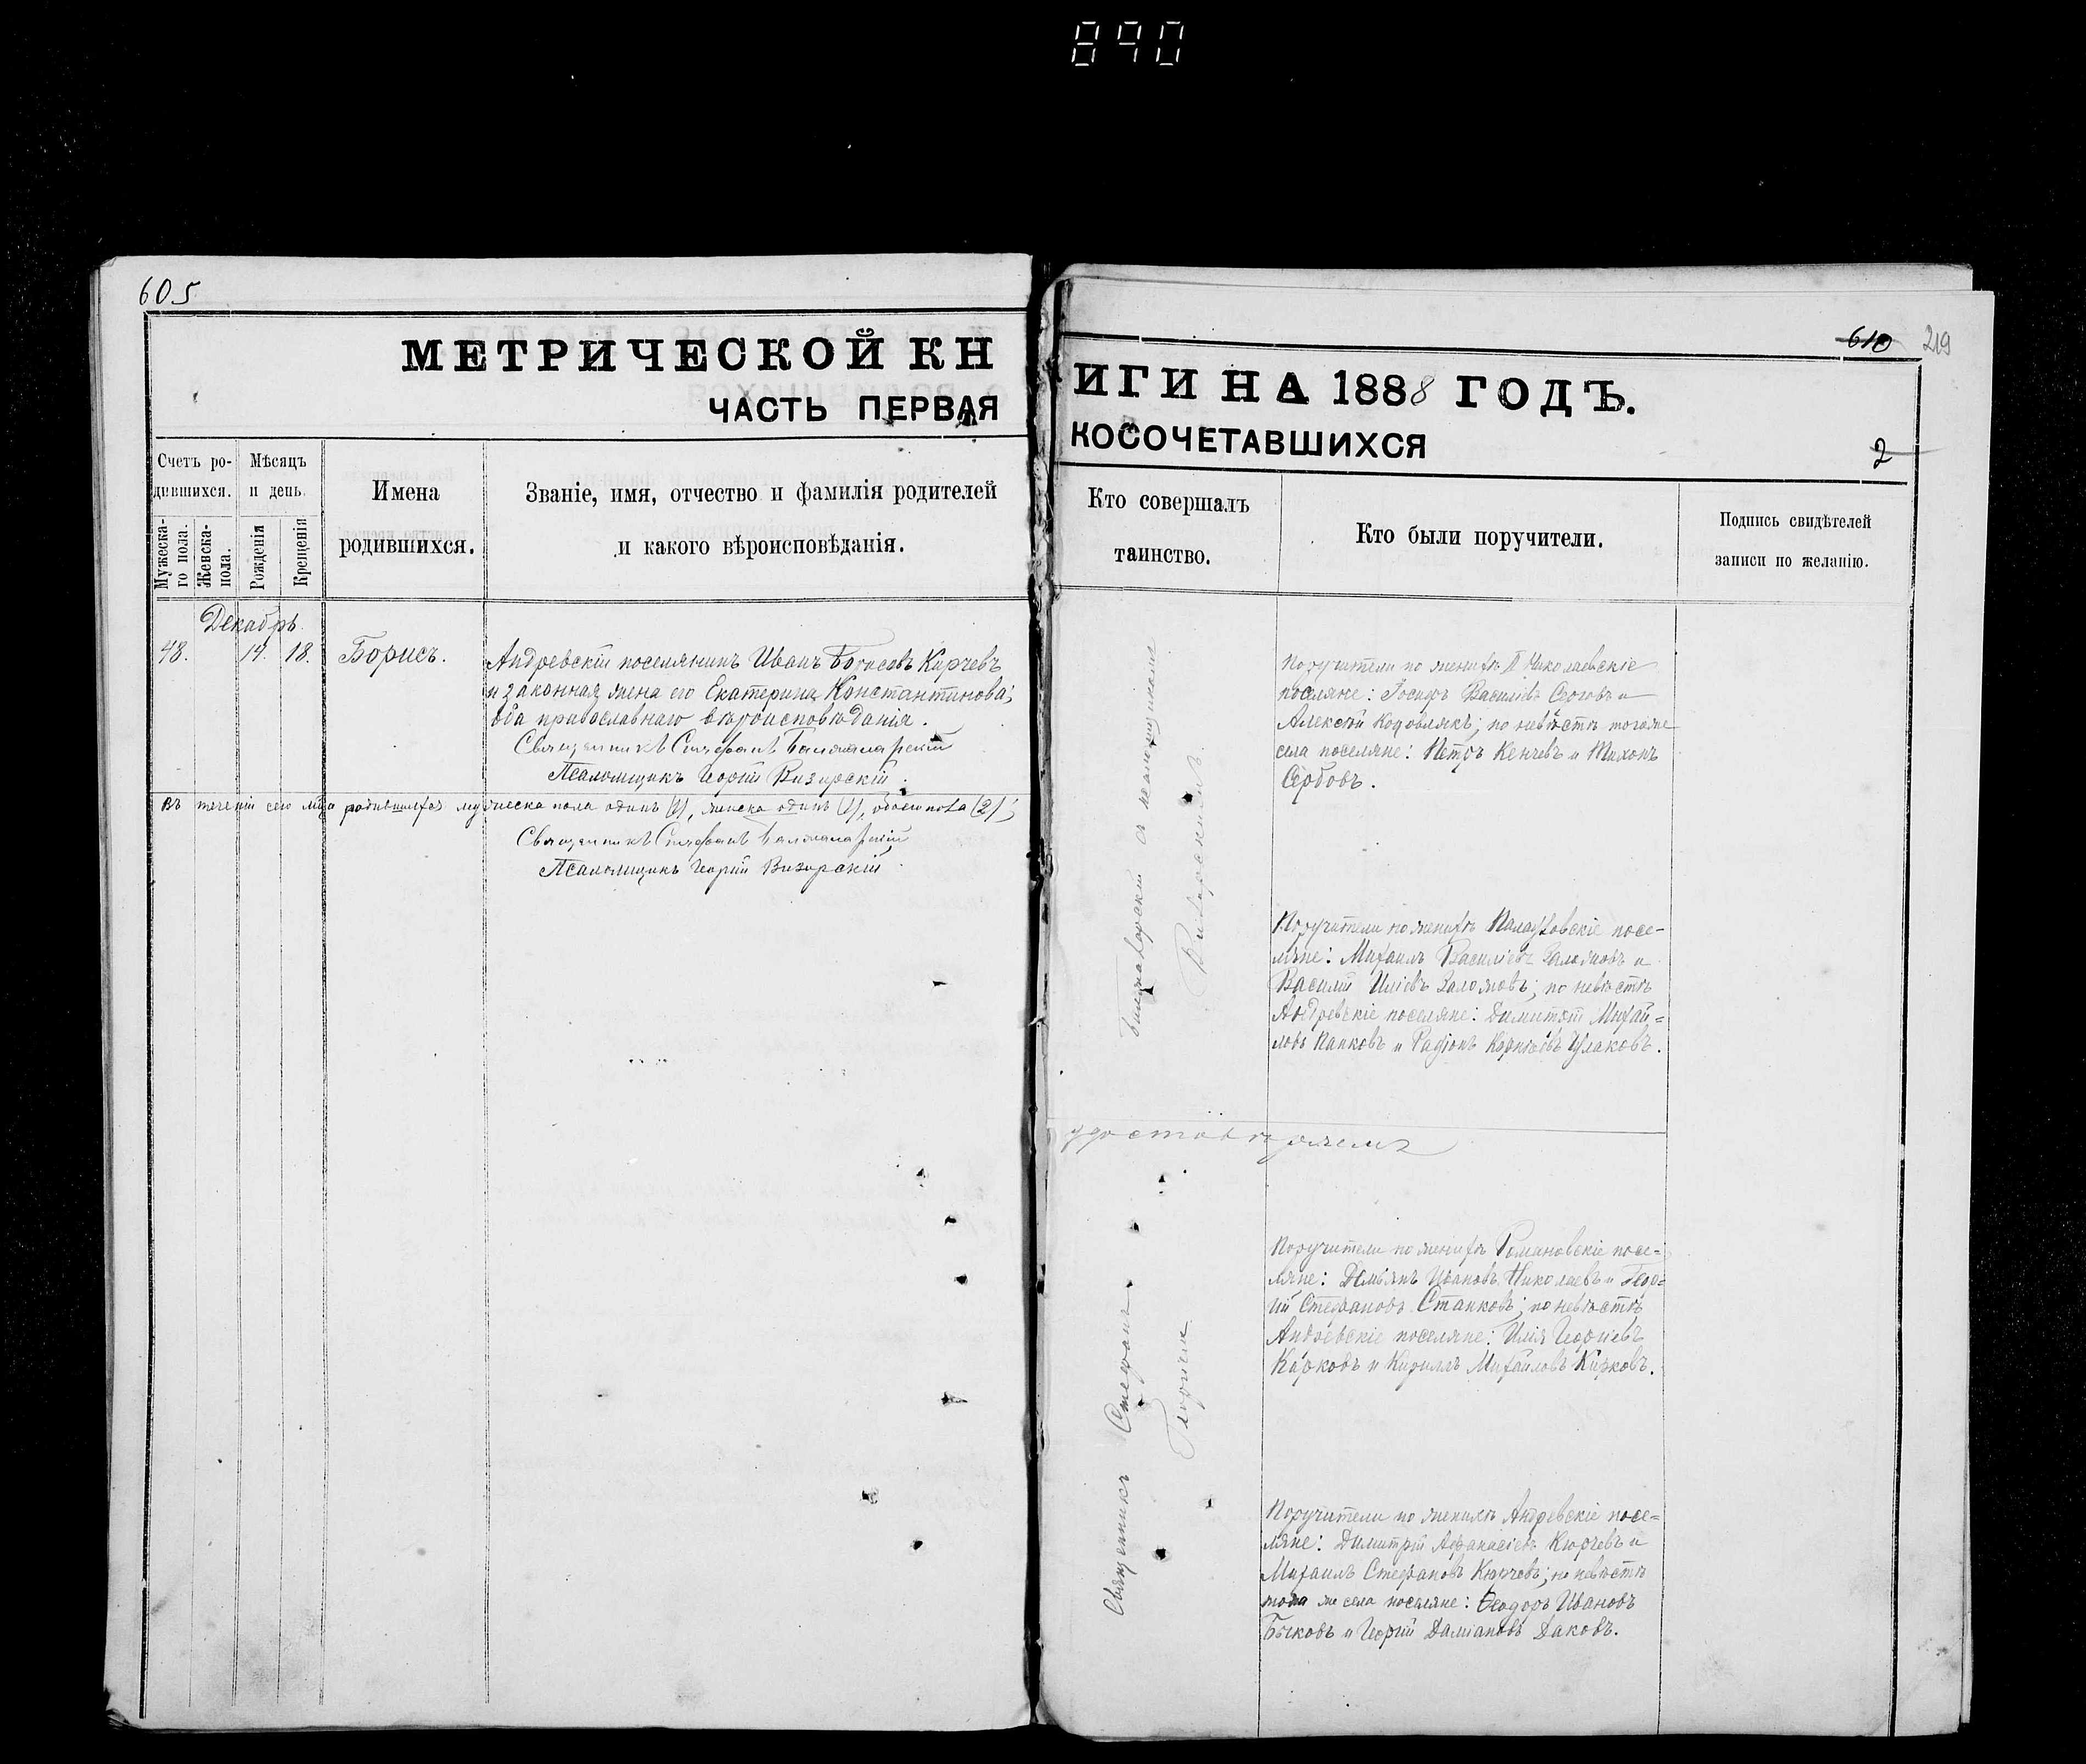 890
605
МЕТРИЧЕСКОЙ КН
ЧАСТЬ ПЕРВАЯ
Счетъ ро-
дившихся.
Мужеска-
го пола.
Женска-
пола.
Мѣсяцъ
и день.
Рожденія
Крещенія
Имена
родившихся.
Званіе, имя, отчество и фамилія родителей
и какого вѣроисповѣданія.
Декабрь
48. 14. 18. Борисъ.
Андреевскій поселянинъ Иванъ Борисовъ Кирчевъ
и законная жена его Екатерина Константинова;
оба православнаго вѣроисповѣданія.
Священникъ Стефанъ
Псаломщикъ Георгій Визирскій.
Въ теченіи сего мѣца родившихся мужеска пола одинъ (1), женска одинъ (1), обоего пола (2);
Священникъ Стефанъ
Псаломщикъ Георгій Визирскій.
610 219
ИГИ НА 1888 ГОДЪ.
КОСОЧЕТАВШИХСЯ
2
Кто совершалъ
таинство.
Кто были поручители.
Подпись свидѣтелей
записи по желанію.
Священникъ Стефанъ съ псаломщикомъ
Георгіем
Поручители по женихѣ II Николаевскіе
поселяне: Іосифъ Василіевъ и
Алексѣй; по невѣстѣ тогоже
села поселяне: Петръ Кенчевъ и Тихонъ
Сербовъ.
Поручители по женихѣ Палаузовскіе посе-
ляне: Михаилъ Василіевъ Заломовъ и
Василій Иліевъ Заломовъ; по невѣстѣ
Андреевскіе поселяне: Димитрій Михай-
ловъ Папковъ и Радіонъ Чулаковъ.
удостовѣряемъ
Поручители по женихѣ Романовскіе посе-
ляне: Даміянъ Ивановъ Николаевъ и Геор-
гій Стефановъ Станковъ; по невѣстѣ
Андреевскіе поселяне: Илія Георгіевъ
Кирковъ и Кириллъ Михайловъ Кирковъ.
Поручители по женихѣ Андреевскіе посе-
ляне: Димитрій Афанасіевъ Кюрчевъ и
Михаилъ Стефановъ Кюрчевъ; по невѣстѣ
того же села поселяне: Ѳеодоръ Ивановъ
Бычковъ и Георгій Даміановъ Даковъ.